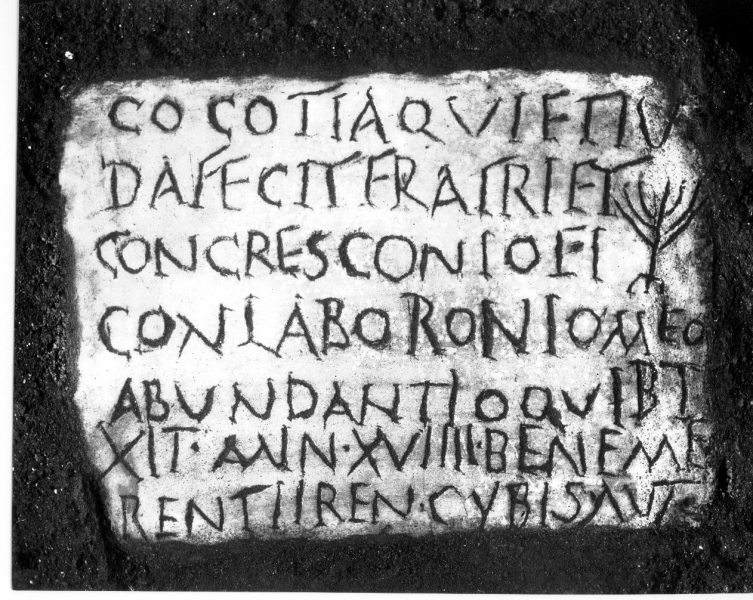 COCOTIAQVIETIV
DAFECITFRATRIET
CONCRESCONIOEI
CONLABORONIOMEO
ABVNDANTIOQVIBI
XIT·ANN·XVIIII·BENEME
RENTIIREN·CYBIS·AVT·